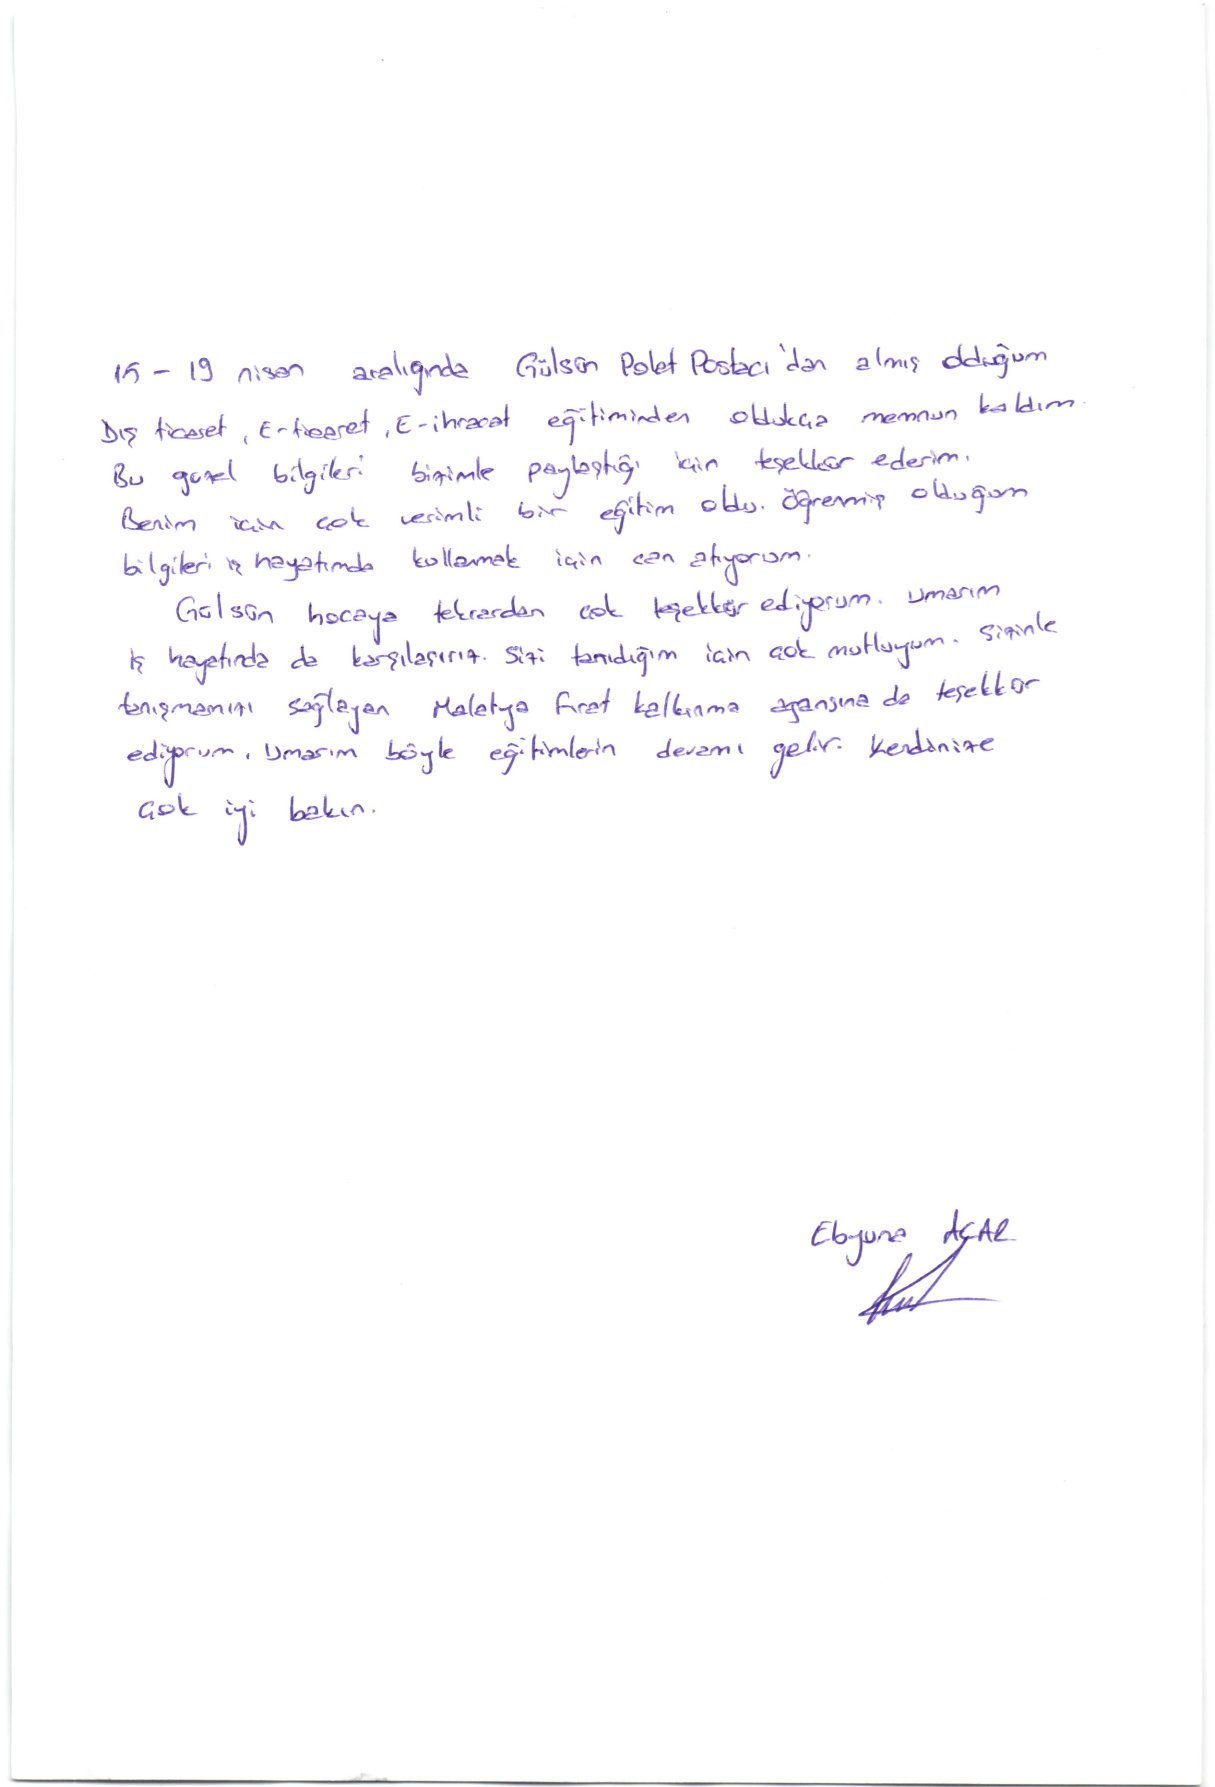 15 - 19 nisan aralığında Gülsün Polat Postacı'dan almış olduğum
Dış ticaret, E-ticaret, E-ihracat eğitiminden oldukça memnun kaldım.
Bu güzel bilgileri bizimle paylaştığı için teşekkür ederim.
Benim için çok verimli bir eğitim oldu. Öğrenmiş olduğum
bilgileri iş hayatımda kullanmak için can atıyorum.
Gülsün hocaya tekrardan çok teşekkür ediyorum. Umarım
iş hayatında da karşılaşırız. Sizi tanıdığım için çok mutluyum. Sizinle
tanışmamızı sağlayan Malatya Fırat kalkınma ajansına da teşekkür
ediyorum. Umarım böyle eğitimlerin devamı gelir. Kendinize
çok iyi bakın.
AÇAR